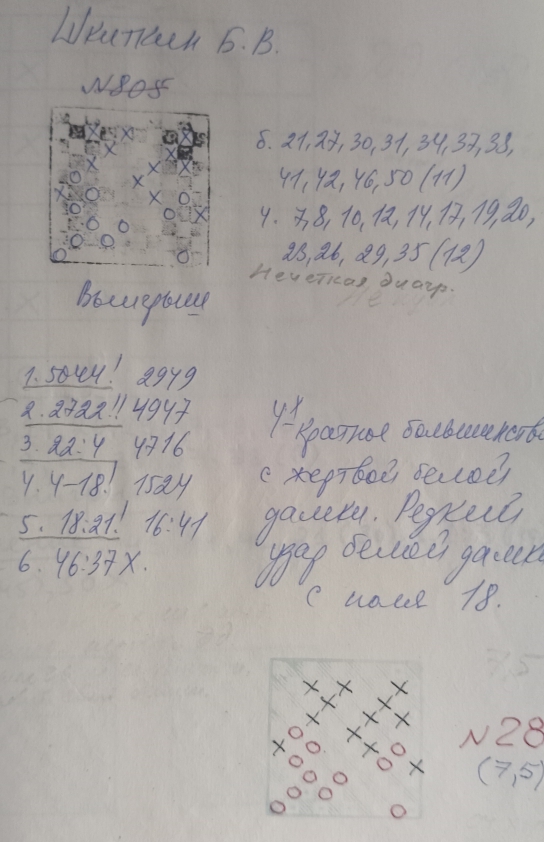 Шкиткин Б.В.
№805
б. 21,27,30,31,34,37,38,
41,42,46,50 (11)
ч. 7,8,10,12,14,17,19,20,
23,26,29,35 (12)
Нечеткая диагр.
Выигрыш
1. 5044! 2949
2. 2722!! 4947
3. 22:4 4716
4. 4-18! 1524
5. 18:21! 16:41
6. 46:37X.
4х-кратное большинство
с жертвой белой
дамки. Редкий
удар белой дамки
с поля 18.
№28
(7,5)